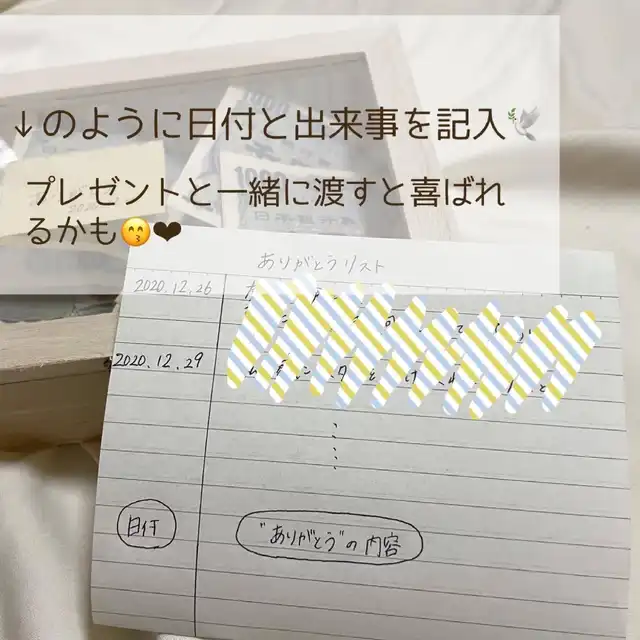 ↓のように日付と出来事を記入🕊️
プレゼントと一緒に渡すと喜ばれ
るかも😙❤
ありがとうリスト
2020.12.26
2020.12.29
日付
"ありがとう"の内容